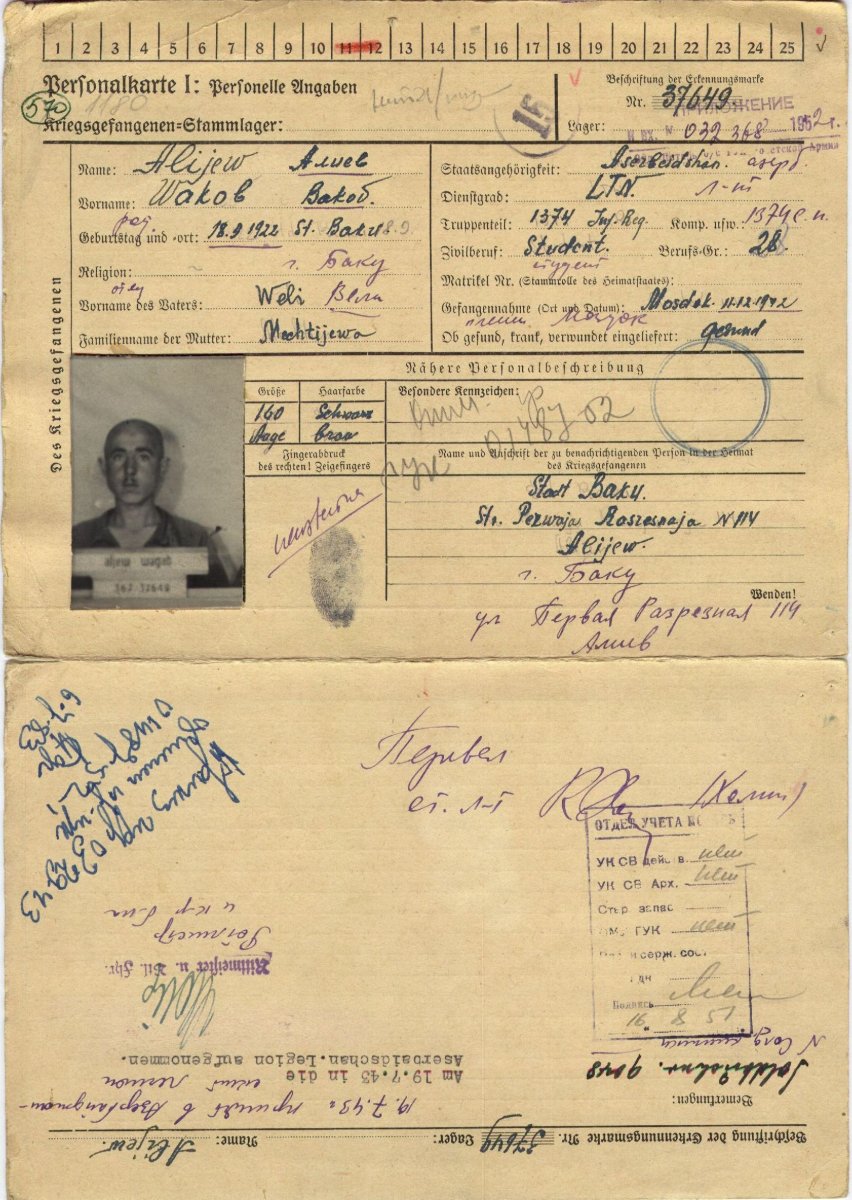 1 2 3 4 5 6 7 8 9 10 11 12 13 14 15 16 17 18 19 20 21 22 23 24 25
Personalkarte I: Personelle Angaben
570
1180
Kriegsgefangenen=Stammlager:
Beschriftung der Erkennungsmarke
Nr. 37649.
ПРИЛОЖЕНИЕ
Lager:
К ВХ. № 032368 1952 г.
Des Kriegsgefangenen
Name: Alijew Алиев
Vorname: Wakob Вакоб.
Geburtstag und -ort: 18.9 1922 St. Baku
г. Баку
Religion:
отец
Vorname des Vaters: Weli Вели
Familienname der Mutter: Mechtijewa
Staatsangehörigkeit: Aserbeidshan. азерб.
Dienstgrad: LTN. Л-т
Truppenteil: 1374 Inf. Reg. Komp. usw.: 1374 с. п.
Zivilberuf: Student. Berufs-Gr.: 28
студент
Matrikel Nr. (Stammrolle des Heimatstaates):
Gefangennahme (Ort und Datum): Mosdok 11.12.1942
плен. Моздок
Ob gesund, krank, verwundet eingeliefert: gesund
Nähere Personalbeschreibung
Größe Haarfarbe Besondere Kennzeichen:
160 Schwarz
Auge braun
01487 02
Fingerabdruck
des rechten! Zeigefingers
Name und Anschrift der zu benachrichtigenden Person in der Heimat
des Kriegsgefangenen
Stadt Baku.
Str. Perwaja Rasresnaja N 114
Alijew.
г. Баку
Wenden!
ул Первая Разрезная 114
Алиев
367 37649
Перевел
ст. л-т
ОТДЕЛ УЧЕТА
УК СВ дейс в. нет
УК СВ Арх. нет
Стар. запас
ГУК нет
и серж. сост
Подпись
16 8 51
Beschriftung der Erkennungsmarke Nr. 37649 Lager: Name: Alijew.
Bemerkungen:
Soldbuchnr. 9048
N Солд. книжки
19.7.43г принят в Азербайджан-
ский легион
Am 19.7.43 in die
Aserbaidschan.Legion aufgenommen.
Rittmeister u. Btl. Fhr.
Ротмистр
и к-р б-на